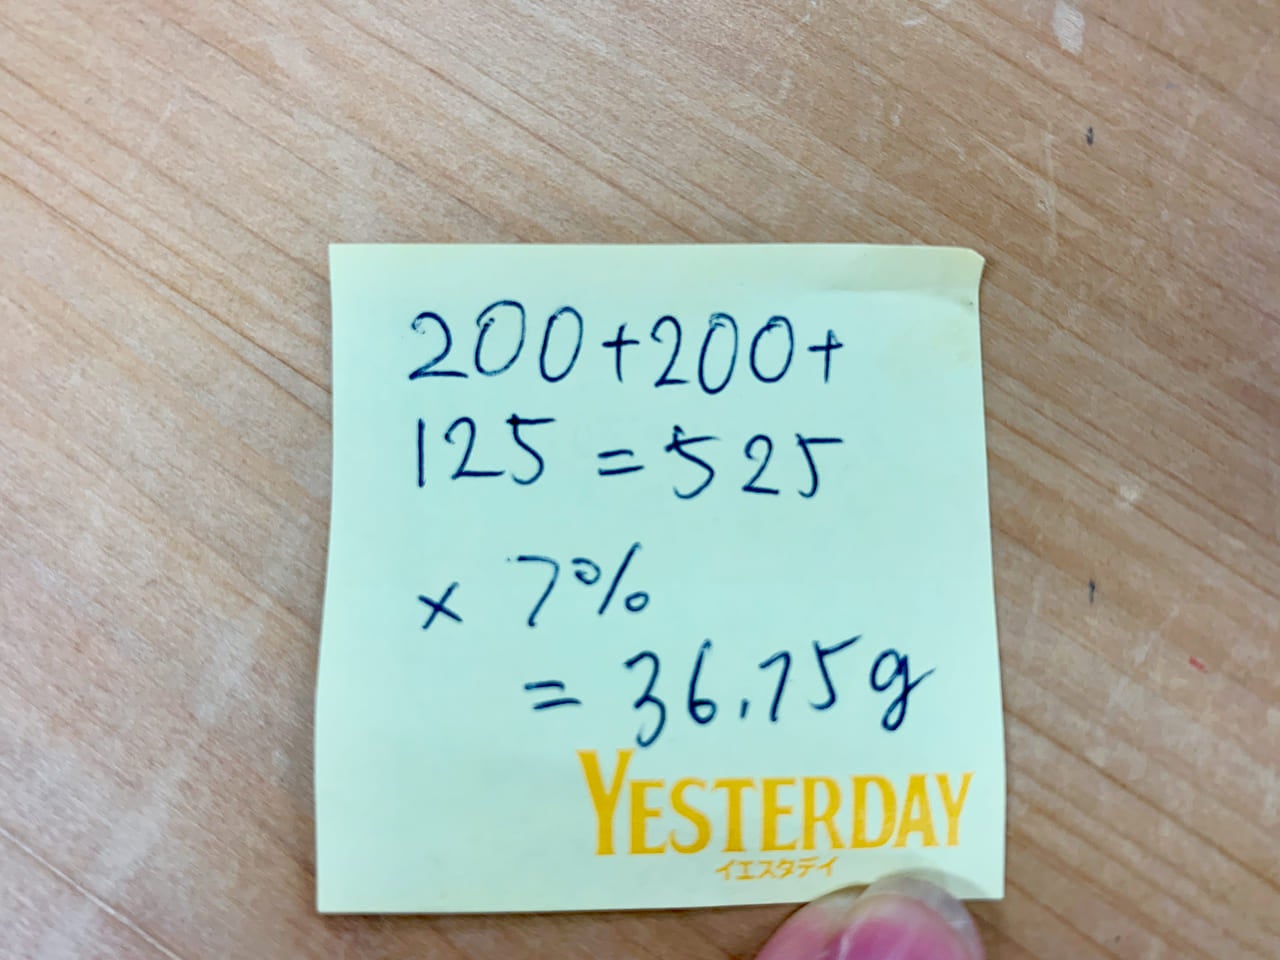 200+200+
125 = 525
× 7%
= 36.75g
YESTERDAY
イエスタデイ